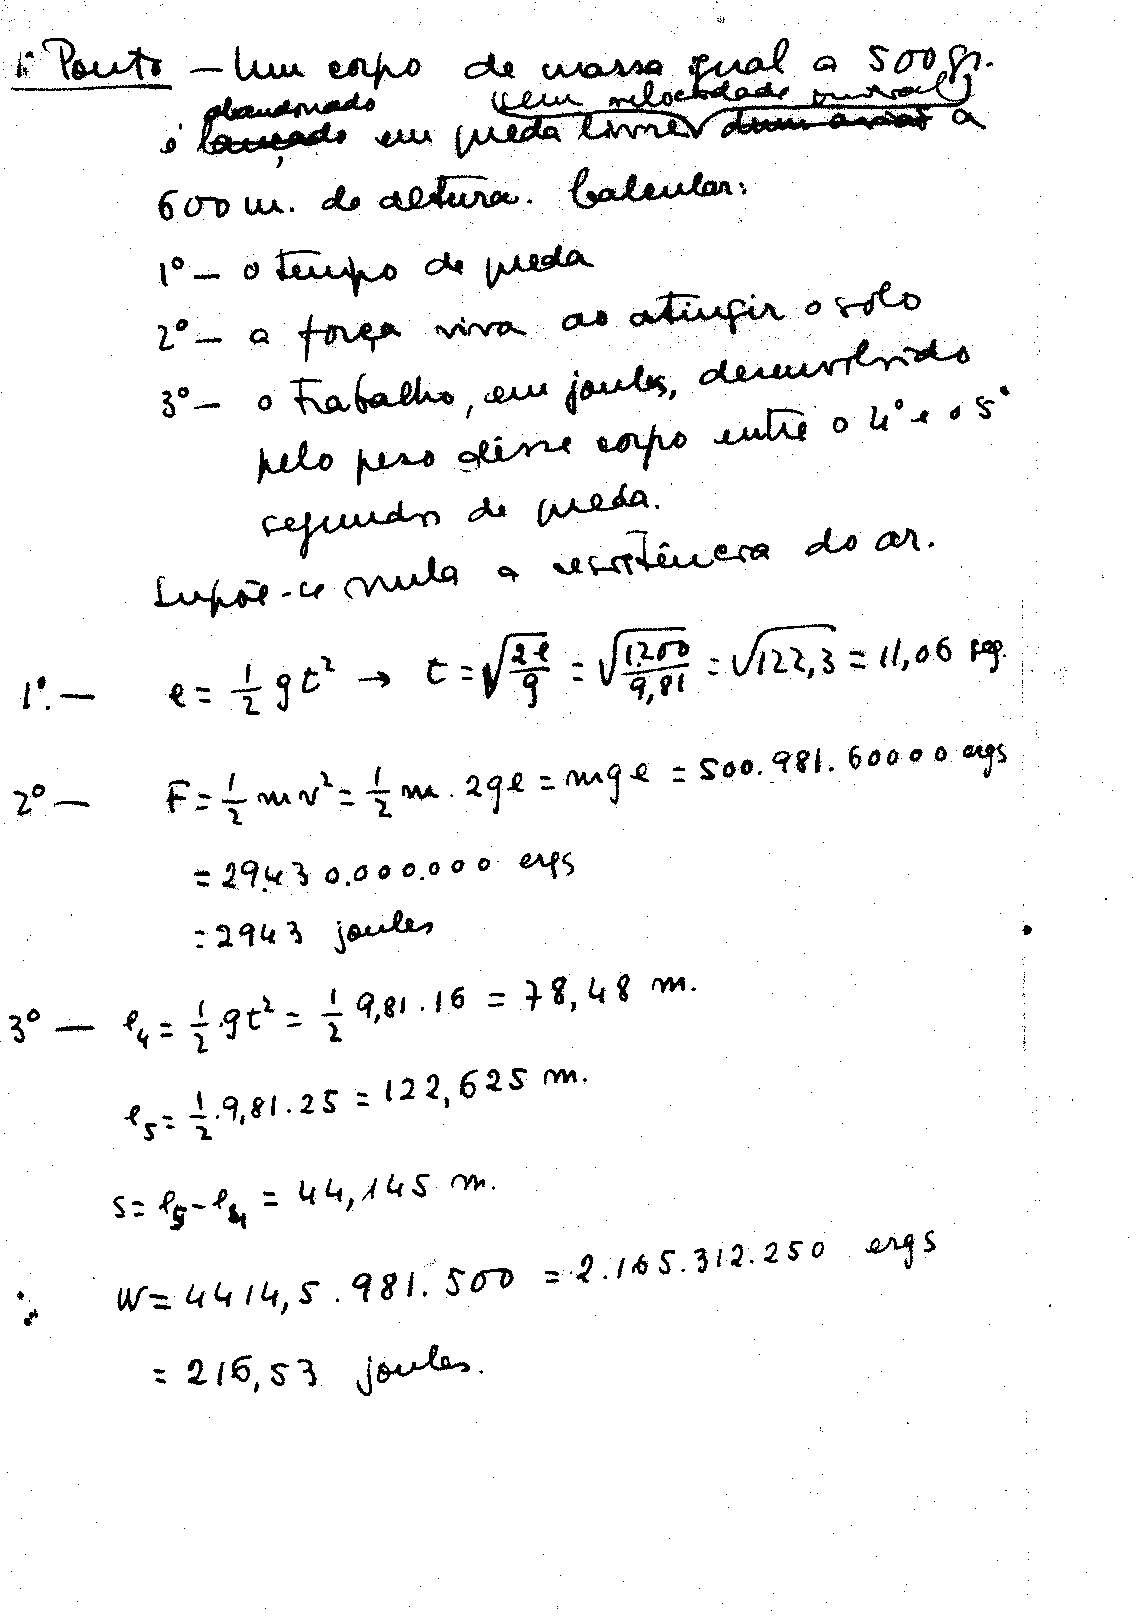 1º Ponto – Um corpo de massa igual a 500 gr.
abandonado (sem velocidade inicial)
é lançado em queda livre dum avião a
600 m. de altura. Calcular:
1º – o tempo de queda
2º – a força viva ao atingir o solo
3º – o trabalho, em joules, desenvolvido
pelo peso dêsse corpo entre o 4º e o 5º
segundos de queda.
Supõe-se nula a resistência do ar.
1º. – e = 1/2 g t² → t = √(2e/g) = √(1200/9,81) = √122,3 = 11,06 seg.
2º – F = 1/2 m v² = 1/2 m . 2ge = mge = 500.981.60000 ergs
= 29.430.000.000 ergs
= 2943 joules
3º – e₄ = 1/2 gt² = 1/2 9,81.16 = 78,48 m.
e₅ = 1/2 . 9,81.25 = 122,625 m.
s = e₅ - e₄ = 44,145 m.
W = 4414,5 . 981. 500 = 2.165.312.250 ergs
= 216,53 joules.